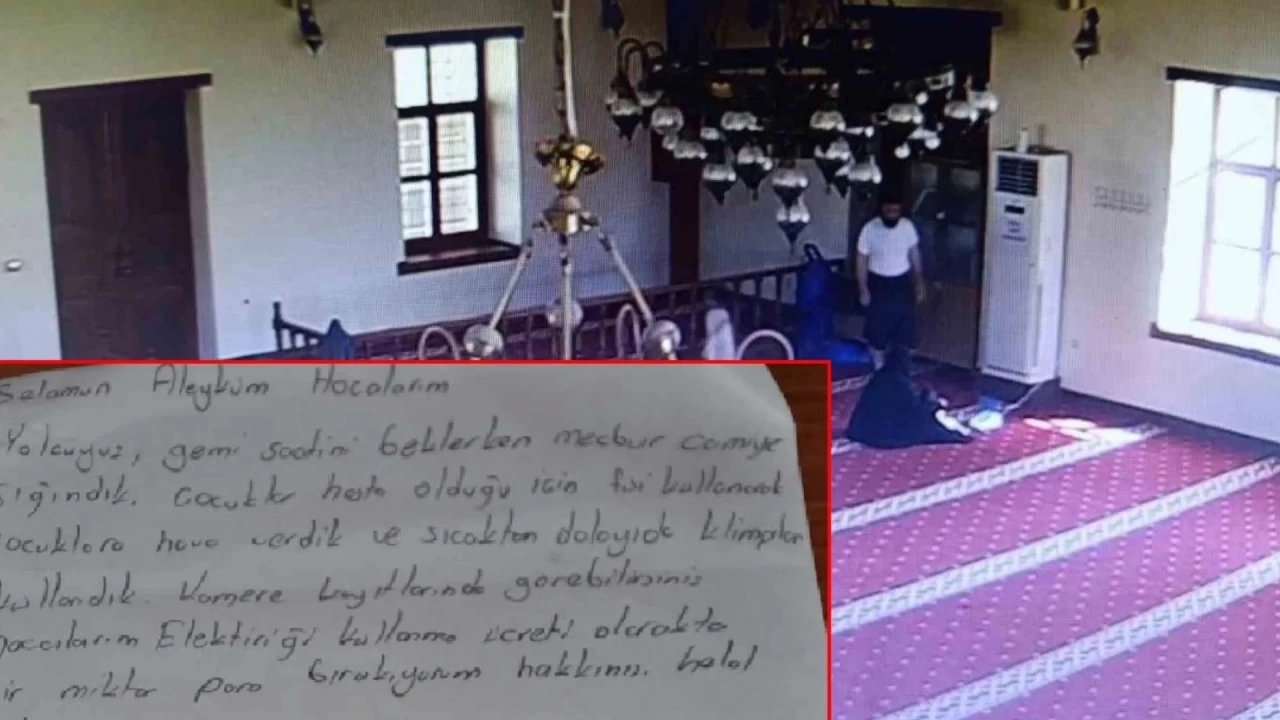 Selamun Aleyküm Hocalarım
Yolcuyuz, gemi saatini beklerken mecbur camiye
sığındık. Çocuklar hasta olduğu için fişi kullanarak
çocuklara hava verdik ve sıcaktan dolayıda klimaları
kullandık. Kamera kayıtlarında görebilirsiniz
hocalarım Elektiriği kullanma ücreti olarakta
bir miktar para bırakıyorum hakkınızı helal